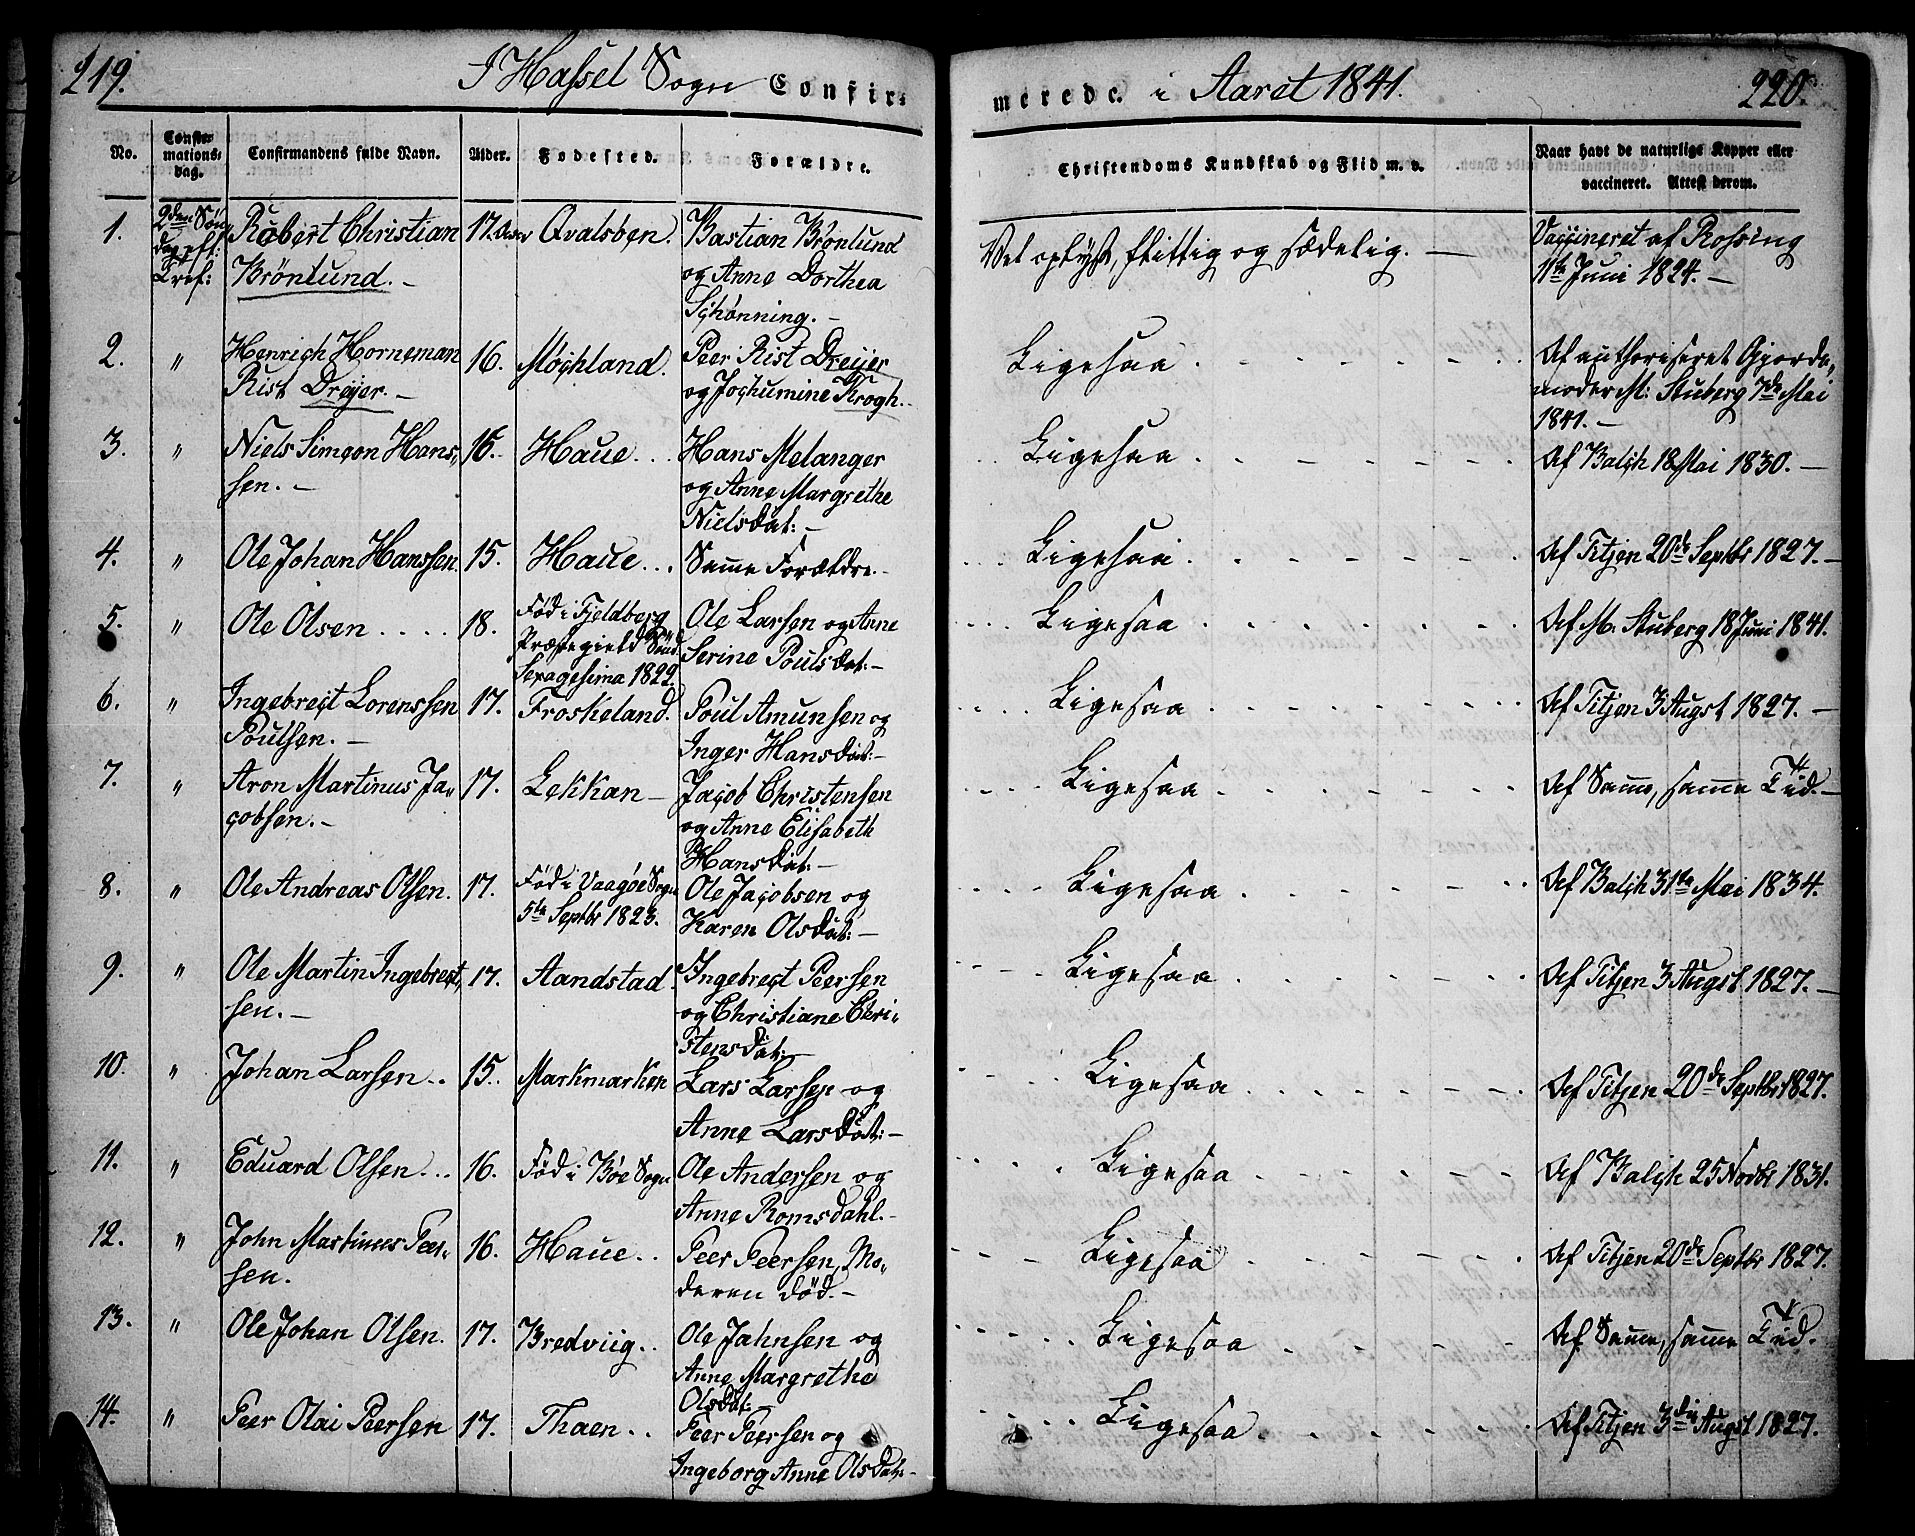 219.
I Hassel Sogn Confir-
merede. i Aaret 1841.
220.
No.
Confir-
mations-
dag.
Confirmandens fulde Navn.
Alder.
Fødested.
Forældre.
Christendoms Kundskab og Flid m. v.
Naar havt de naturlige Kopper eller
vaccineret. Attest derom.
1.
2den Søn-
dag eft:
Tref:
Robert Christian
Brönlund. -
17. Aar
Qvalsben.
Bastian Brönlund
og Anne Dorthea
Schønning. -
Vel oplyst, flittig og sædelig. -
Vaccineret af Rossing
11te Juni 1824. -
2.
"
Henrich Horneman
Rist Dreyer. -
16.
Møchland.
Peer Rist Dreyer
og Jochumine Krogh. -
Ligesaa
Af authoriseret Gjorde-
moder M: Stuberg 7de Mai
1841. -
3.
"
Niels Simeon Hans-
sen. -
16.
Haue. .
Hans Melanger
og Anne Margrethe
Nielsdat: -
Ligesaa
Af Balch 18 Mai 1830. -
4.
"
Ole Johan Hanssen.
15.
Haue. . .
Samme Forældre. -
Ligesaa
Af Titjen 20de Septbr 1827. -
5.
"
Ole Olsen . . . .
18.
Fød i Fjeldberg
Præstegield Sønd:
Sexagesima 1822.
Ole Larsen og Anne
Serine Poulsdat: -
Ligesaa
Af M. Stuberg 18 Juni 1841.
6.
"
Ingebregt Lorenssen
Poulsen. -
17.
Froskeland.
Poul Amunsen og
Inger Hansdat: -
Ligesaa
Af Titjen 3 Augst 1827. -
7.
"
Aron Martinus Ja-
cobsen. -
17.
Lekkan -
Jacob Christensen
og Anne Elisabeth
Hansdat: -
Ligesaa
Af Samme, samme Tid. -
8.
"
Ole Andreas Olsen.
17.
Fød i Vaagøe Sogn
5te Septbr 1823.
Ole Jacobsen og
Karen Olsdat: -
Ligesaa
Af Balch 31te Mai 1834.
9.
"
Ole Martin Ingebregt-
sen. -
17.
Aandstad.
Ingebregt Peersen
og Christiane Chri-
stensdat: -
Ligesaa
Af Titjen 3 Augst 1827. -
10.
"
Johan Larsen . .
15.
Markmarken
Lars Larsen og
Anne Larsdat: -
Ligesaa
Af Titjen 20de Septbr 1827.
11.
"
Eduard Olsen . . .
16.
Fød i Bøe Sogn
Ole Andersen og
Anne Romsdahl. -
Ligesaa
Af Balch 25 Novbr 1831.
12.
"
John Martinus Peer-
sen.
16.
Haue. .
Peer Peersen, Mo-
deren død. -
Ligesaa
Af Titjen 20de Septbr 1827.
13.
"
Ole Johan Olsen.
17.
Bredviig. .
Ole Jahnsen og
Anne Margrethe
Olsdat: -
Ligesaa
Af Samme, samme Tid.
14.
"
Peer Olai Peersen
17.
Thaen. .
Peer Peersen og
Ingeborg Anne Olsdat: -
Ligesaa
Af Titjen 3die Augst 1827.